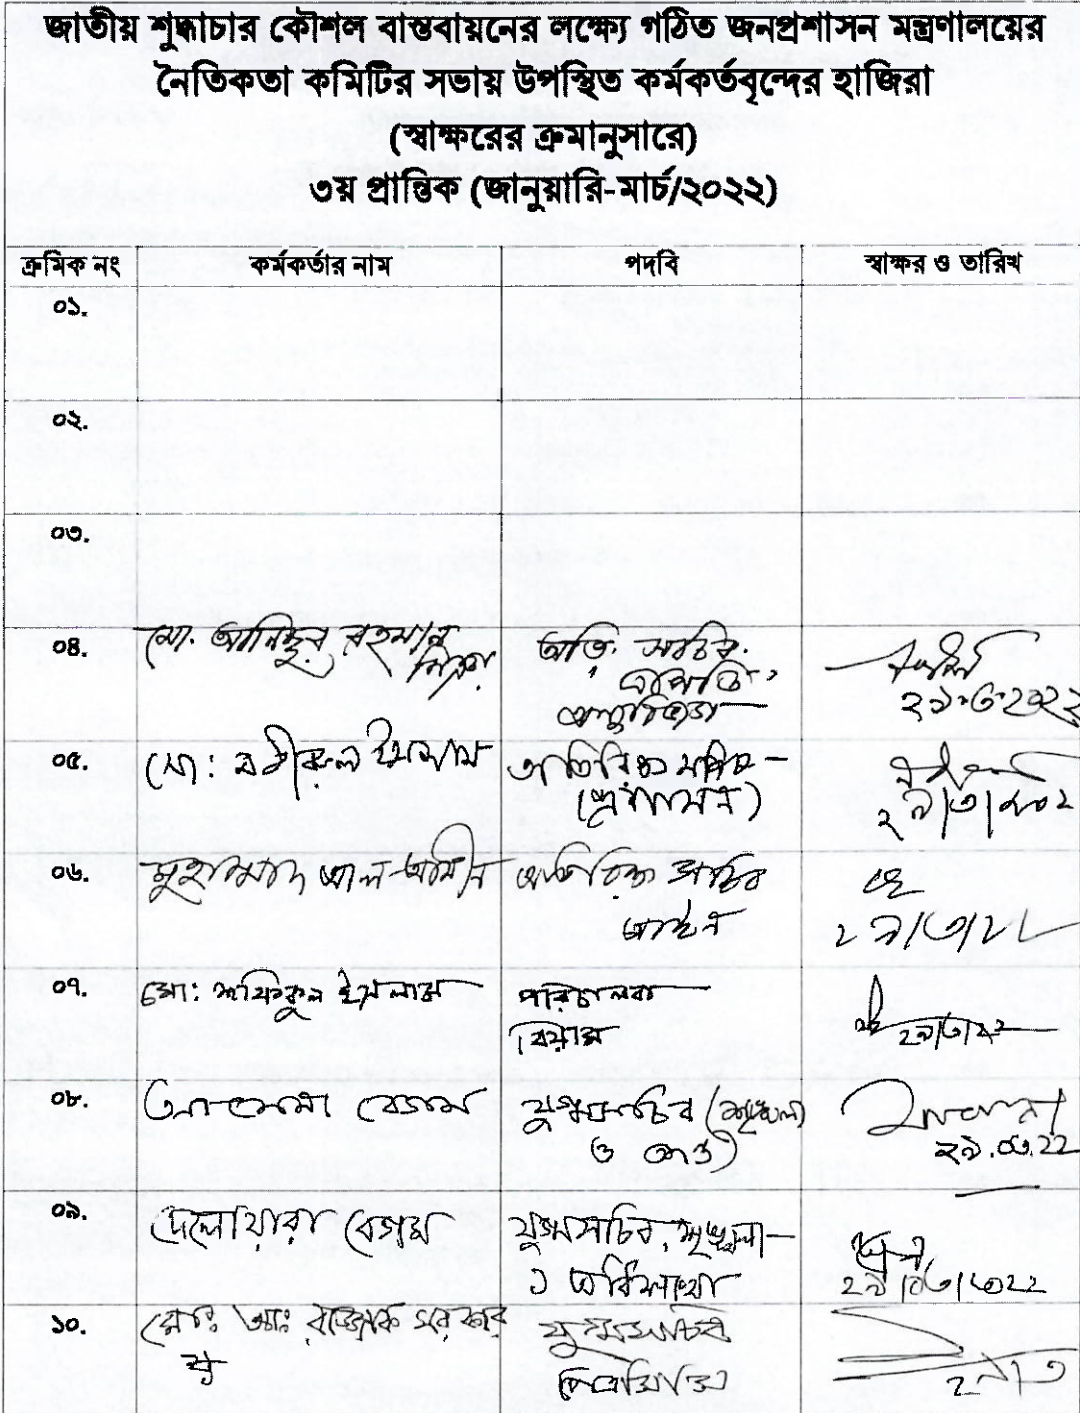 জাতীয় শুদ্ধাচার কৌশল বাস্তবায়নের লক্ষ্যে গঠিত জনপ্রশাসন মন্ত্রণালয়ের
নৈতিকতা কমিটির সভায় উপস্থিত কর্মকর্তবৃন্দের হাজিরা
(স্বাক্ষরের ক্রমানুসারে)
৩য় প্রান্তিক (জানুয়ারি-মার্চ/২০২২)
ক্রমিক নং কর্মকর্তার নাম পদবি স্বাক্ষর ও তারিখ
০১.
০২.
০৩.
০৪. মো. আনিছুর রহমান অতি. সচিব
২৯.৩.২০২২
০৫. মো: ইসলাম অতিরিক্ত সচিব
(প্রশাসন)
০৬. মুহাম্মাদ আল-আমীন অতিরিক্ত সচিব
আইন ২৯/৩/২২
০৭. মো: শফিকুল ইসলাম পরিচালক
বিয়াম ২৯/৩/২২
০৮. বেগম যুগ্মসচিব (শৃঙ্খলা
ও তদন্ত) ২৯.০৩.22
০৯. দেলোয়ারা বেগম যুগ্মসচিব, শৃঙ্খলা-
১ অধিশাখা
১০. মোঃ আঃ রাজ্জাক সরকার যুগ্মসচিব
২৯/৩